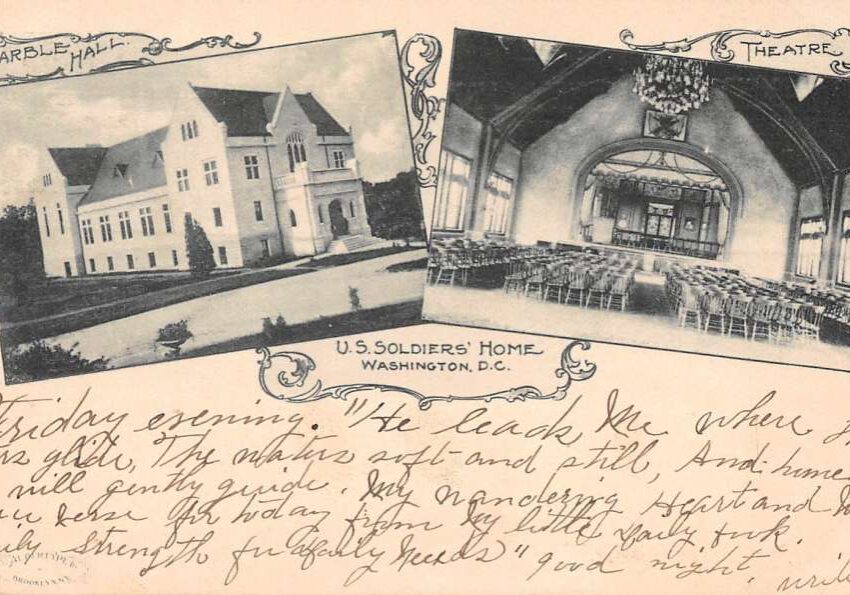 ARBLE HALL.
THEATRE
U.S. SOLDIERS' HOME
WASHINGTON, D.C.
Friday evening. "He leads Me where
glide, The waters soft and still, And
will gently guide. My wandering Heart and
verse for today from My little Daily Book.
Strength for Daily Needs" good night,
ALBERTYPE
BROOKLYN, N.Y.